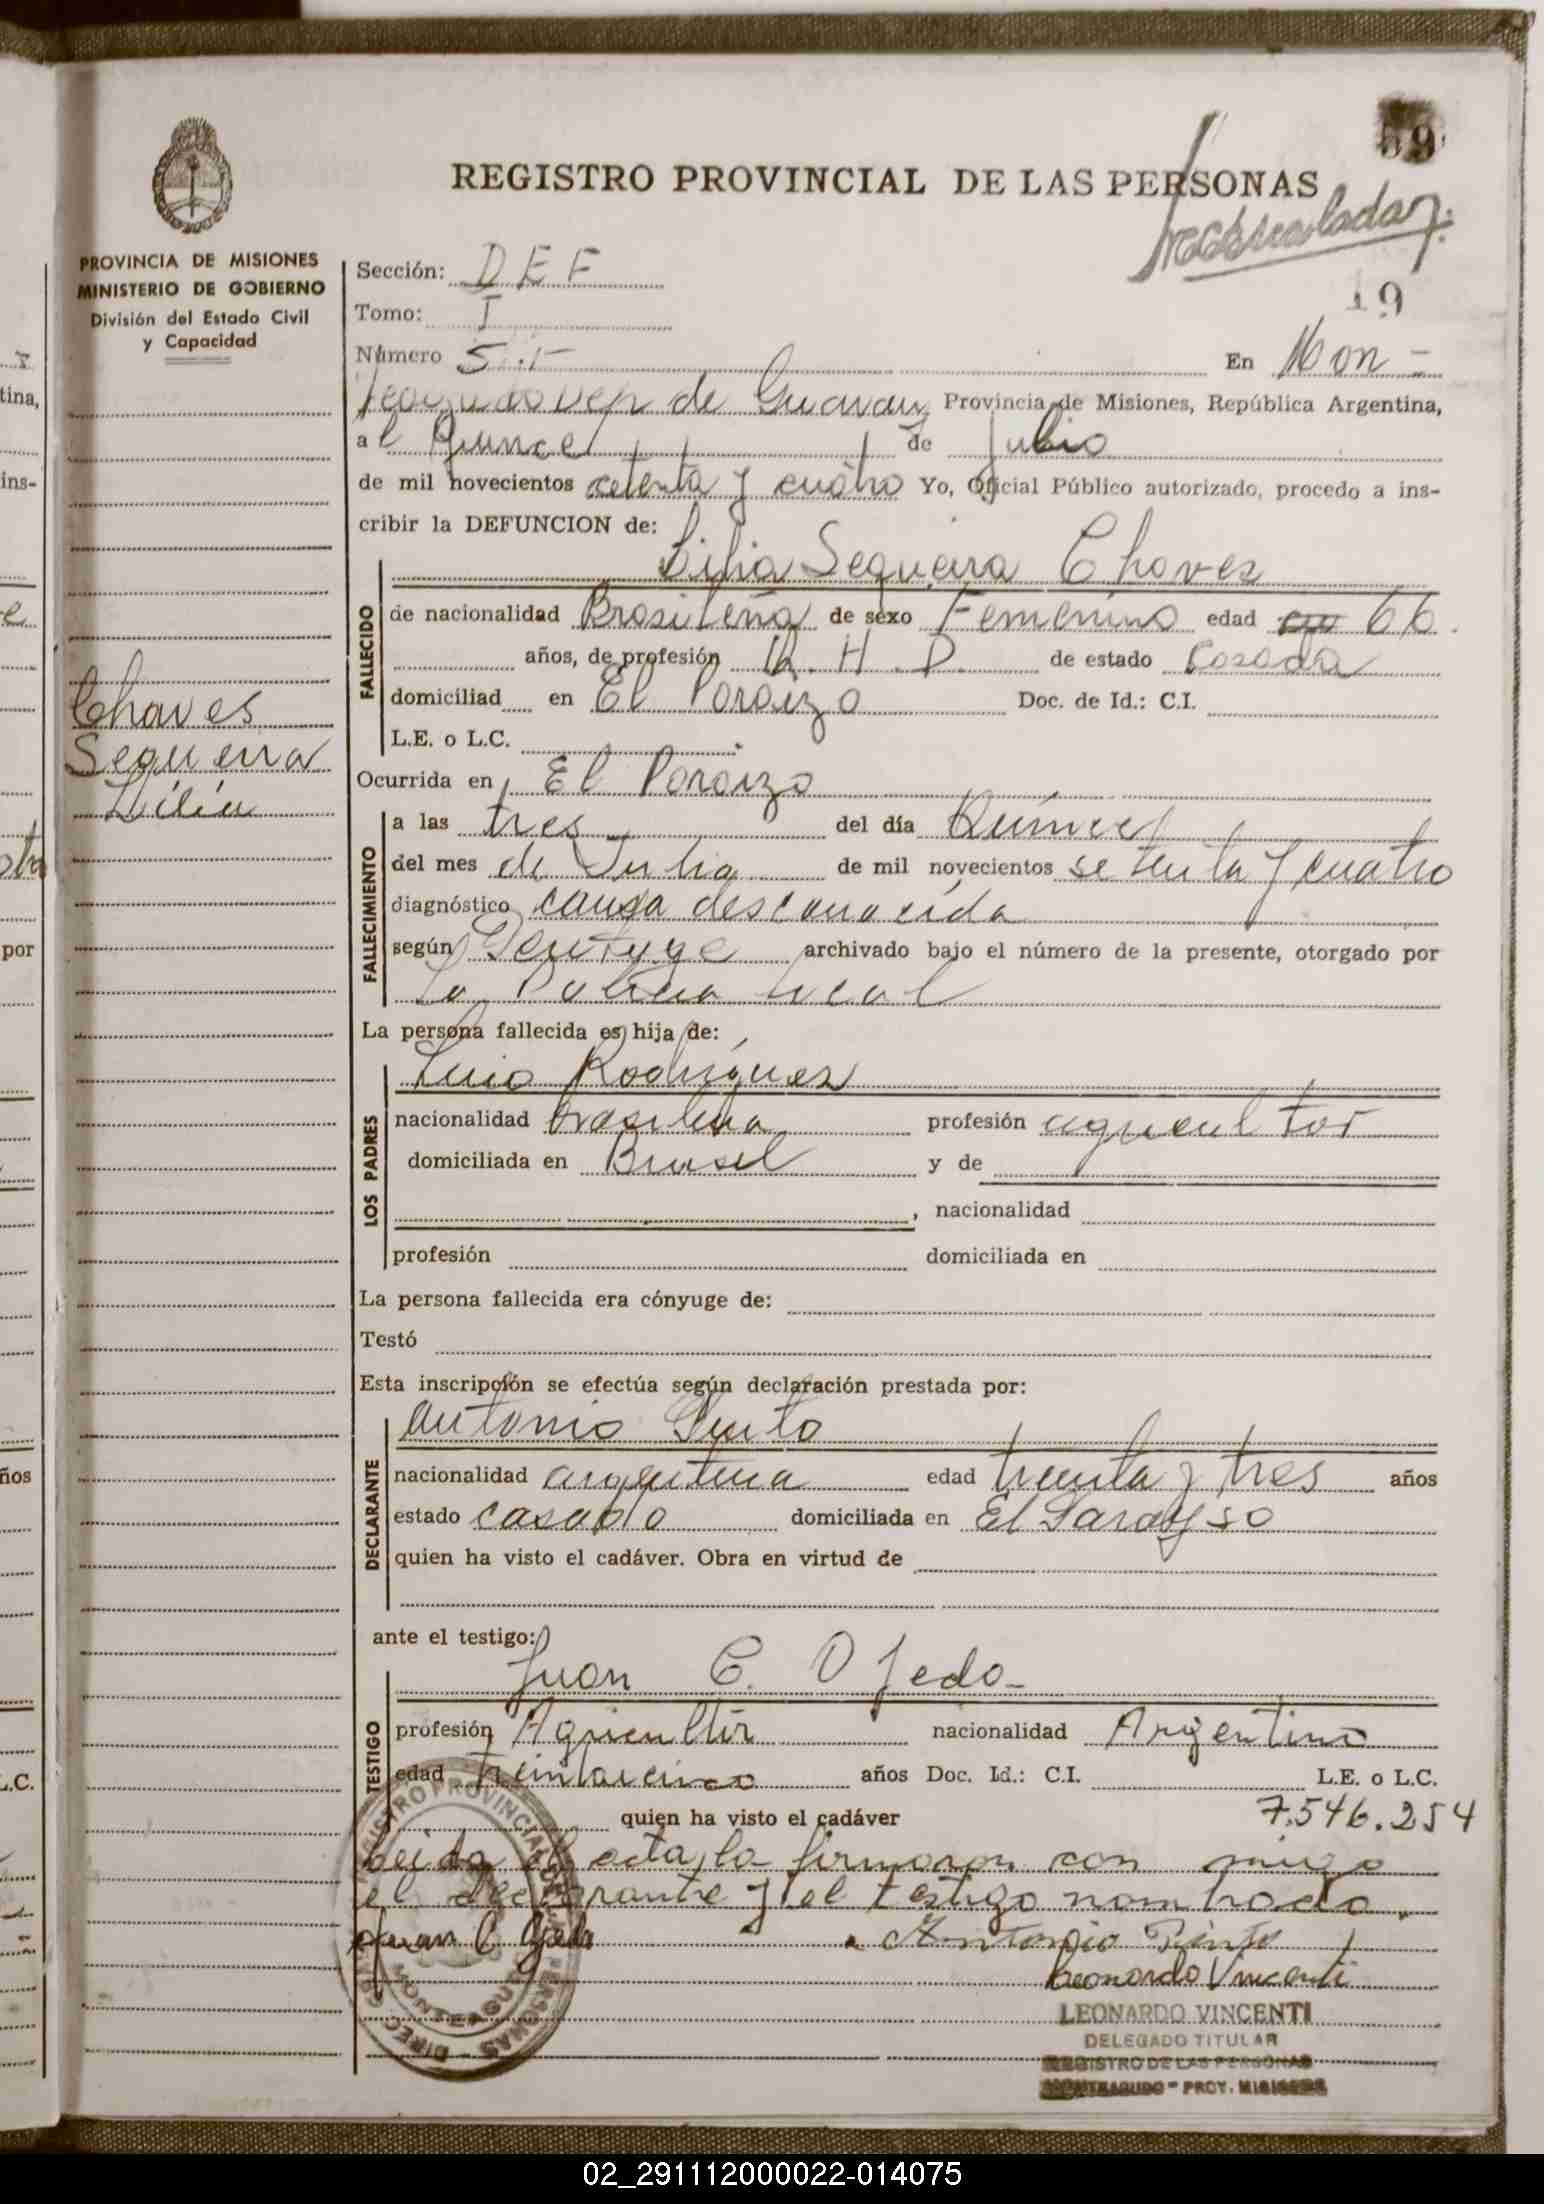 59
REGISTRO PROVINCIAL DE LAS PERSONAS
19
PROVINCIA DE MISIONES
MINISTERIO DE GOBIERNO
División del Estado Civil
y Capacidad
Sección: D E F
Tomo: I
Número 5 En Mon-
de Guarany Provincia de Misiones, República Argentina,
al Quince de Julio
de mil novecientos setenta y cuatro Yo, Oficial Público autorizado, procedo a ins-
cribir la DEFUNCION de:
Lilia Sequeira Chavez
FALLECIDO
de nacionalidad Brasileña de sexo Femenino edad 66.
años, de profesión Q. H. D. de estado Casada
domiciliad en El Paraizo Doc. de Id.: C.I.
L.E. o L.C.
Chaves
Sequeira
Lilia
Ocurrida en El Paraizo
FALLECIMIENTO
a las tres del día Quince
del mes de Julio de mil novecientos setenta y cuatro
diagnóstico causa desconocida
según archivado bajo el número de la presente, otorgado por
la Policia local
La persona fallecida es hija de:
LOS PADRES
Luis Rodriguez
nacionalidad brasileña profesión agricultor
domiciliada en Brasil y de
, nacionalidad
profesión domiciliada en
La persona fallecida era cónyuge de:
Testó
Esta inscripción se efectúa según declaración prestada por:
DECLARANTE
Antonio Pinto
nacionalidad argentina edad treinta y tres años
estado casado domiciliada en El Parayso
quien ha visto el cadáver. Obra en virtud de
ante el testigo:
TESTIGO
Juan C. Ojeda
profesión Agricultor nacionalidad Argentino
edad treintaicinco años Doc. Id.: C.I. L.E. o L.C.
quien ha visto el cadáver 7.546.254
Leida el acta, la firmaron con migo
el declarante y el testigo nombrado.
Juan C Ojeda Antonio Pinto
Leonardo Vincenti
LEONARDO VINCENTI
DELEGADO TITULAR
REGISTRO DE LAS PERSONAS
MONTEAGUDO - PROV. MISIONES
02_291112000022-014075